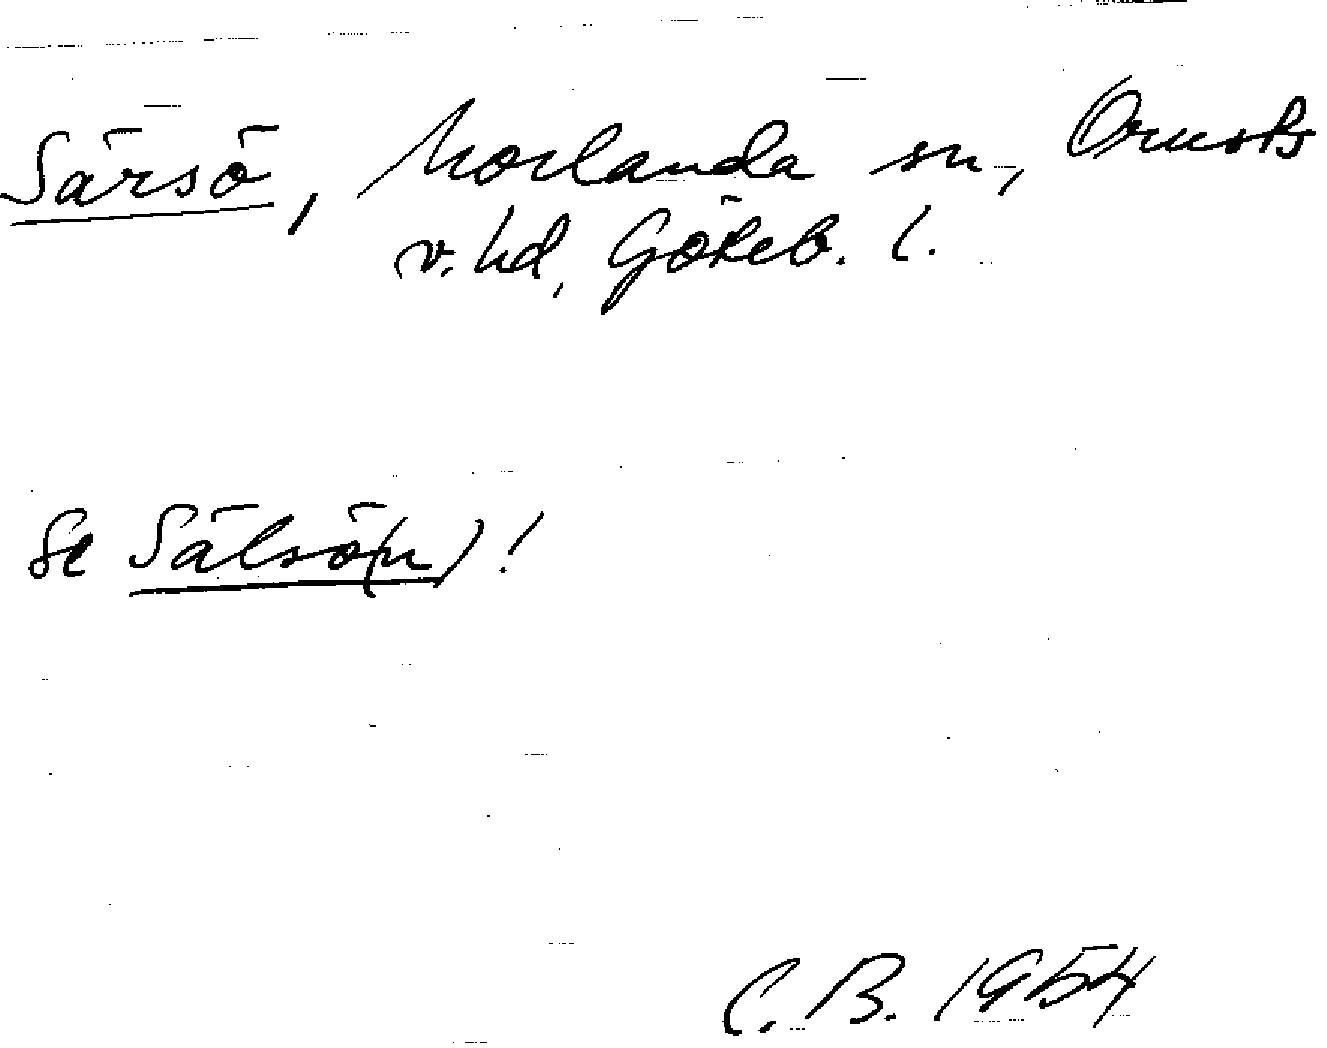 Särsö, Morlanda sn, Orusts
v. hd, Göteb. l.
Se Sälsö(n)!
C. B. 1954